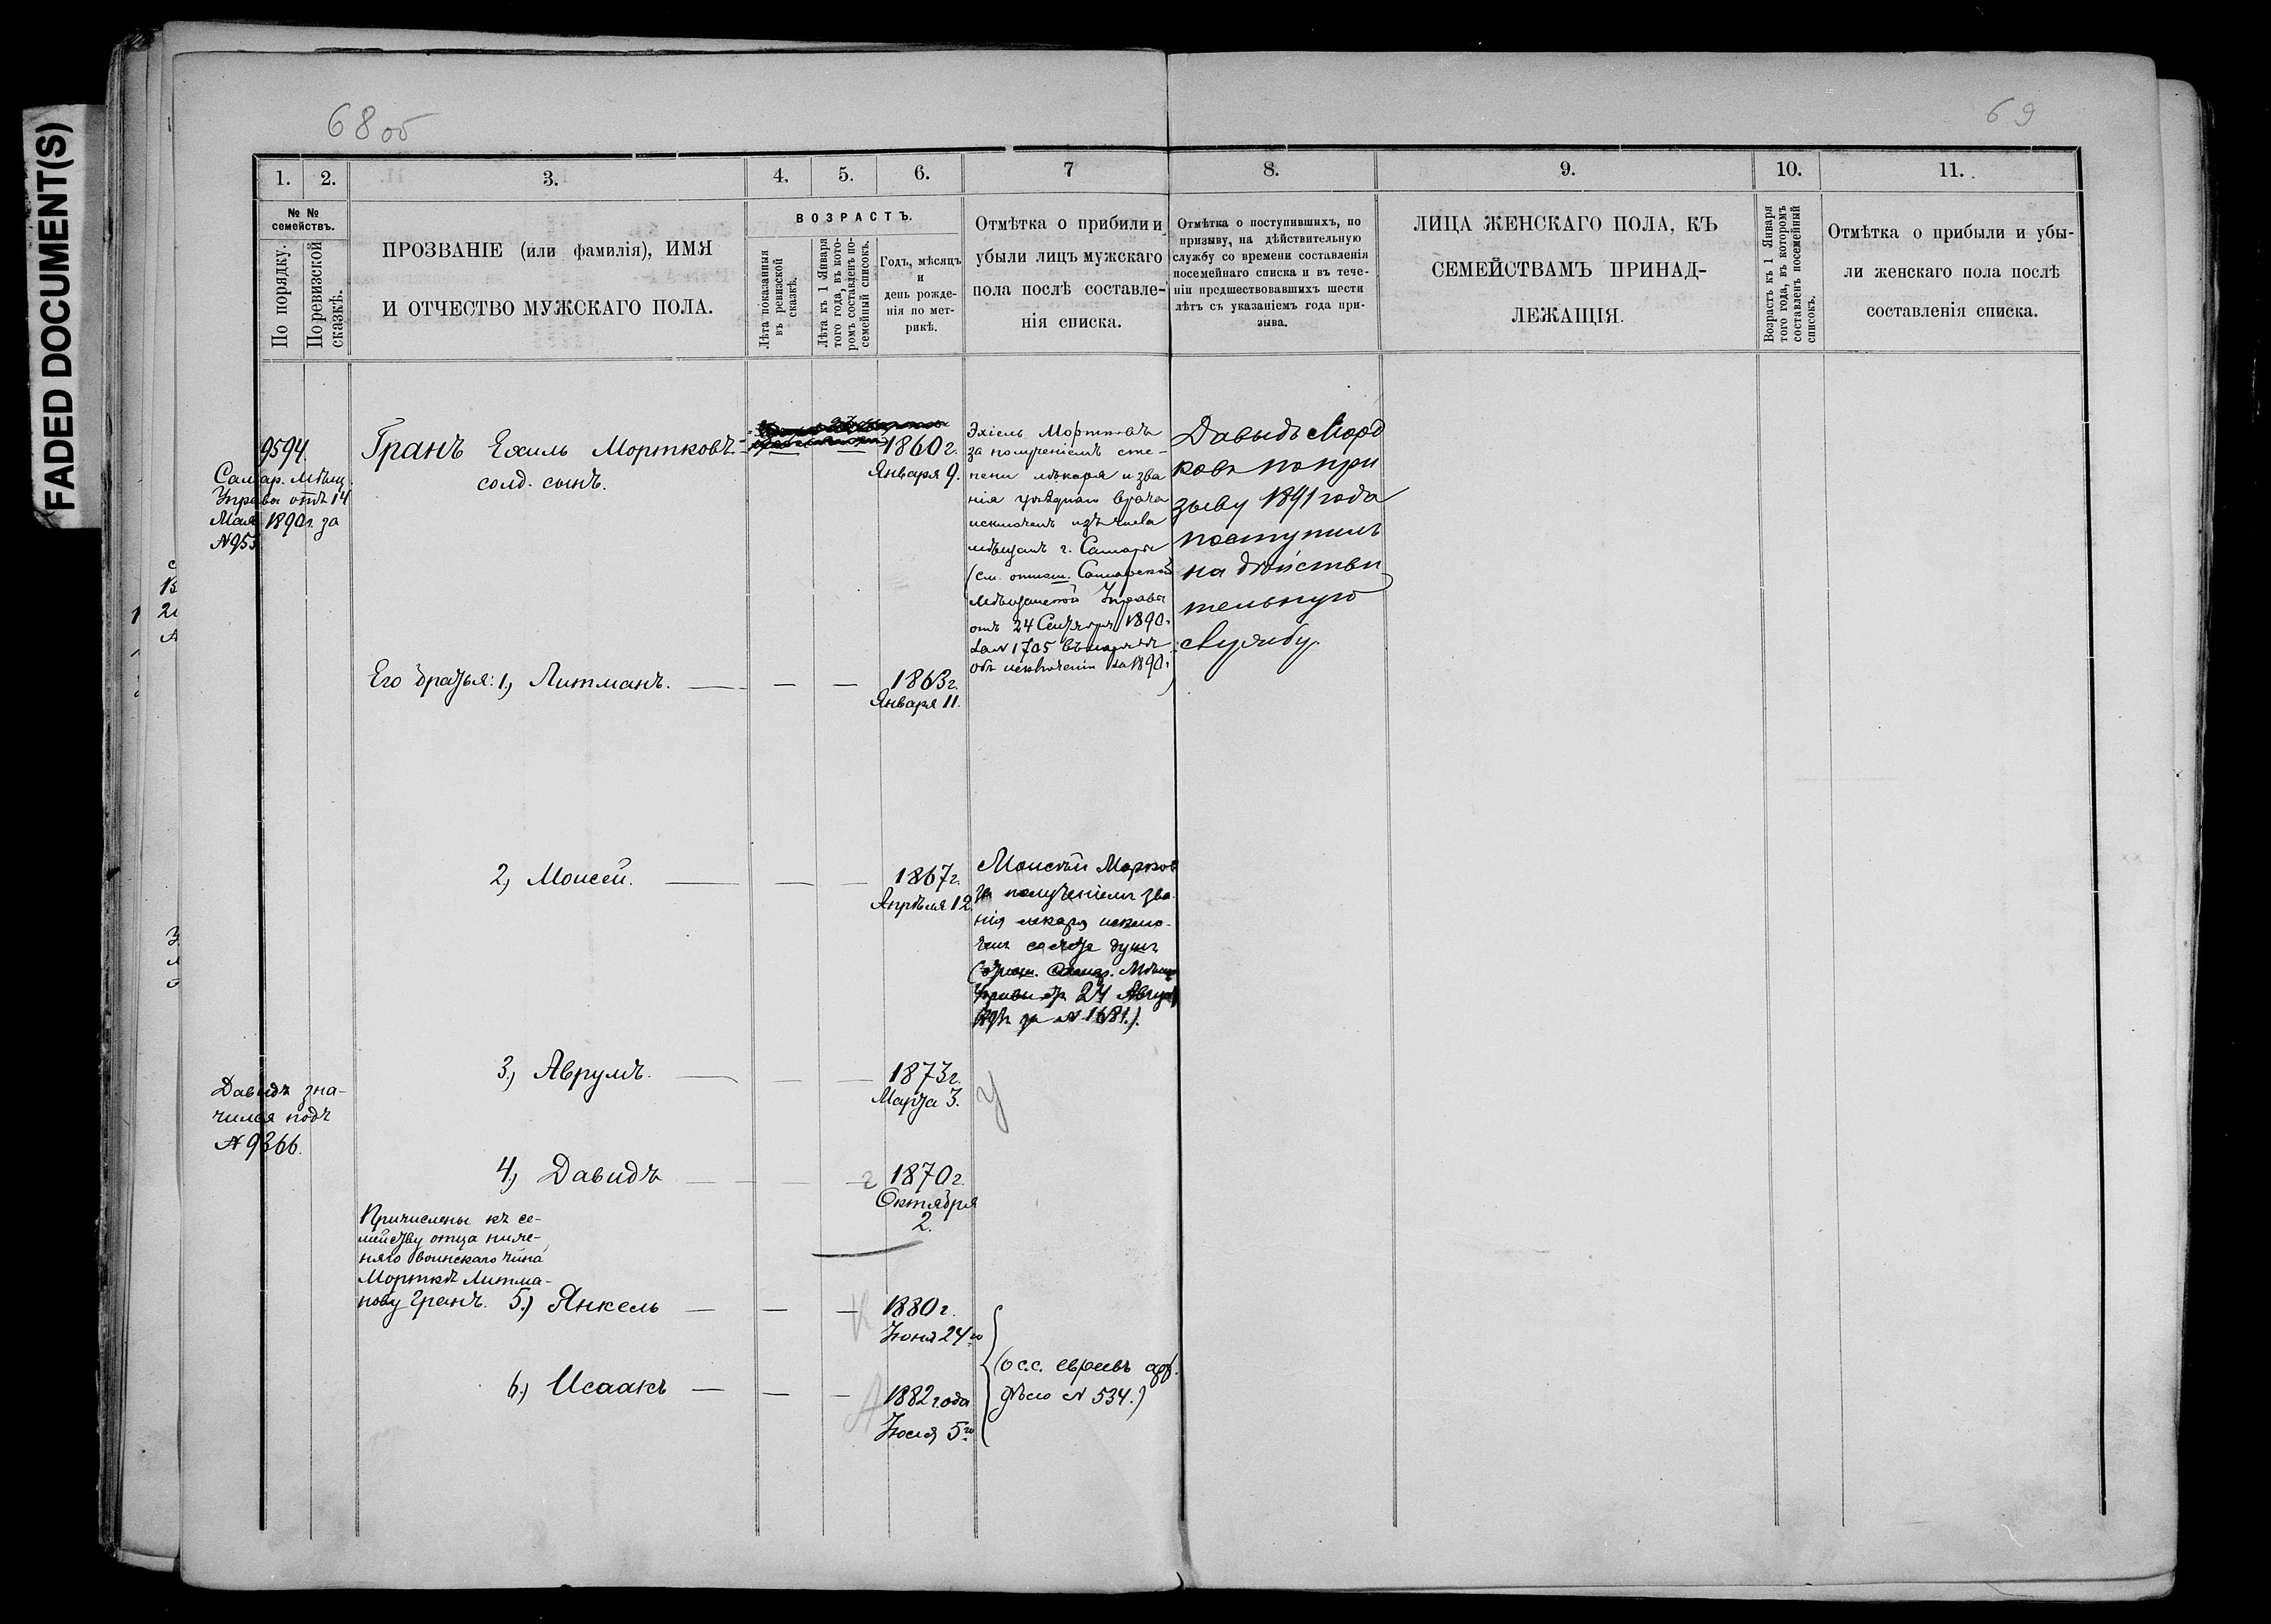 FADED DOCUMENT(S)
68 об
69
1.
2.
3.
4.
5.
6.
7
8.
9.
10.
11.
№ №
семействъ.
По порядку.
По ревизской
сказкѣ.
ПРОЗВАНІЕ (или фамилія), ИМЯ
И ОТЧЕСТВО МУЖСКАГО ПОЛА.
ВОЗРАСТЪ.
Лѣта показанныя
въ ревизской
сказкѣ.
Лѣта къ 1 Января
того года, въ кото-
ромъ составленъ по-
семейный списокъ.
Годъ, мѣсяцъ
и
день рожде-
нія по мет-
рикѣ.
Отмѣтка о прибыли и
убыли лицъ мужскаго
пола послѣ составле-
нія списка.
Отмѣтка о поступившихъ, по
призыву, на дѣйствительную
службу со времени составленія
посемейнаго списка и въ тече-
ніи предшествовавшихъ шести
лѣтъ съ указаніемъ года при-
зыва.
ЛИЦА ЖЕНСКАГО ПОЛА, КЪ
СЕМЕЙСТВАМЪ ПРИНАД-
ЛЕЖАЩІЯ.
Возрастъ къ 1 Января
того года, въ которомъ
составленъ посемейный
списокъ.
Отмѣтка о прибыли и убы-
ли женскаго пола послѣ
составленія списка.
9594.
Самар. Мѣщ.
Управы отъ 14
Мая 1890 г. за
№ 953
Гранъ Ехиль Мортковъ
солд. сынъ.
1860 г.
Января 9.
Эхіель Мортковъ
за полученіемъ сте-
пени лѣкаря и зва
нія уѣзднаго врача
исключенъ изъ числа
мѣщанъ г. Самары
(см. отнош. Самарской
Мѣщанской Управы
отъ 24 Сентября 1890 г.
за № 1705
объ исключеніи за 1890 г.)
Давыдъ Морд
ковъ по при
зыву 1891 года
поступилъ
на дѣйстви
тельную
службу.
Его братья: 1, Литманъ.
1863 г.
Января 11.
2, Моисей.
1867 г.
Апрѣля 12.
Моисей Мортков
за полученіемъ зва-
нія лекаря исклю-
ченъ душъ
Мѣщ
Управы 24 Август
за № 1681.).
3, Аврумъ.
1873 г.
Марта 3.
У
Давидъ зна-
чился подъ
№ 9366.
4, Давидъ
1870 г.
Октября
2.
Причислены къ се-
мейству отца ниж-
няго воинскаго чина
Морткѣ Литма-
нову Гранъ. 5.) Янкель
1880 г.
Іюня 24го
6.) Исаакъ
1882 года
Іюля 5го
(о с.с. евреевъ
дѣло № 534.)